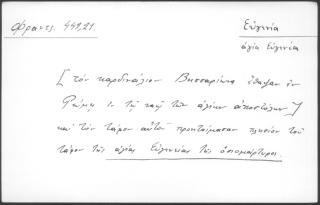 Φραντζ. 449,21.
Εὐγενία
ἁγία Εὐγενία
[τὸν καρδινάλιον Βησσαρίωνα ἔθαψαν ἐν
Ῥώμῃ ἐν τῷ ναῷ τῶν ἁγίων ἀποστόλων]
καὶ τὸν τάφον αὐτοῦ προητοίμασαν πλησίον τοῦ
τάφου τῆς ἁγίας Εὐγενείας τῆς ὁσιομάρτυρος.